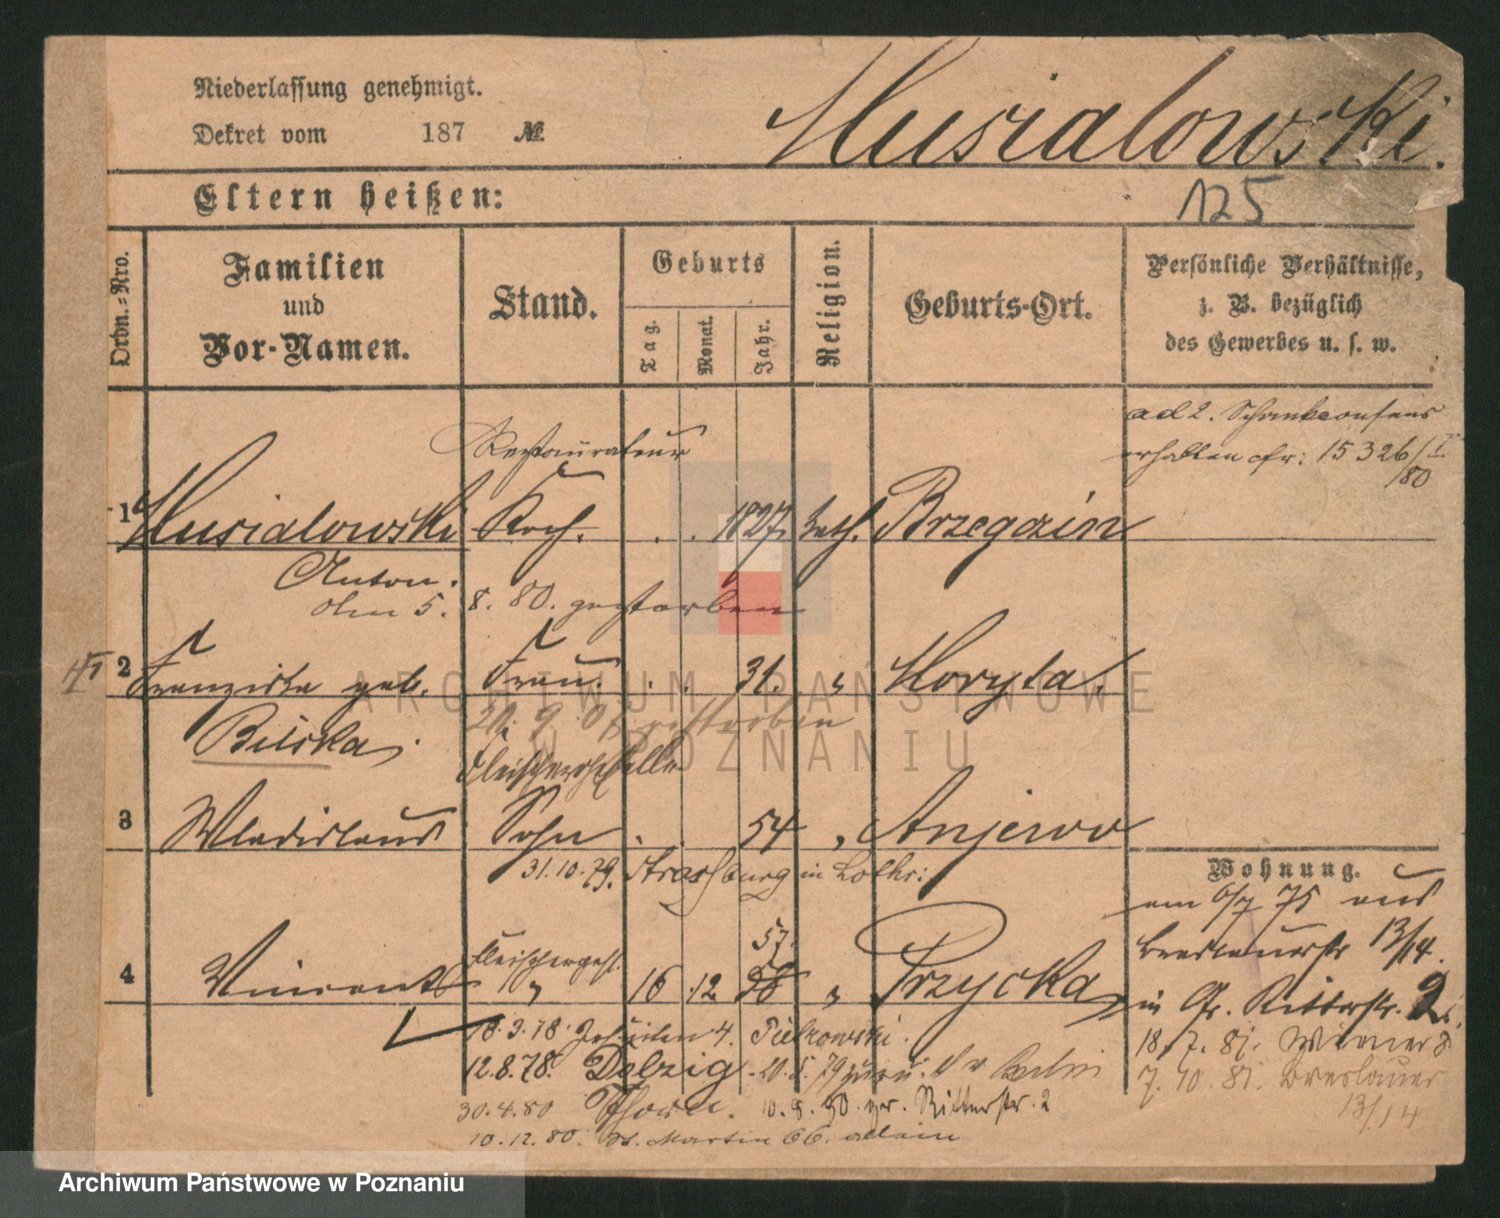 Niederlassung genehmigt.
Dekret vom 187 №
Musialowski.
Eltern heißen:
125
Ordn.-Nro.
Familien
und
Vor-Namen.
Stand.
Geburts
Tag.
Monat.
Jahr.
Religion.
Geburts-Ort.
Persönliche Verhältnisse,
z. B. bezüglich
des Gewerbes u. s. w.
ad 2. Schankconsens
erhalten cfr: 15326/I
/80
Restaurateur
1 Musialowski Koch. . . 1827 kath. Brzegdzin
Anton.
den 5. 8. 80. gestorben
2 Franziska geb. Frau. . . 31. " Moryta.
Bilska
20. 9. gestorben
Fleischergeselle
3 Wladislaus Sohn . 54 " Anjewo
31.10.79. Strassburg in Lothr:
Wohnung.
am 6/7 75 aus
Breslauerstr 13/14.
in Gr. Ritterstr. 2.
57.
4 Vincent Fleischerges. " 16 12 58 " Przycka
18.3.78. Jesuiten 4. Pietrowski.
12.8.78. Dolzig
18. 7. 81. Wiener 8.
7. 10. 81. Breslauer
13/14
30.4.80 Thorn. 10.8.80. Gr. Ritterstr. 2
10.12.80. St. Martin 66. allein
ARCHIWUM PAŃSTWOWE
W POZNANIU
Archiwum Państwowe w Poznaniu